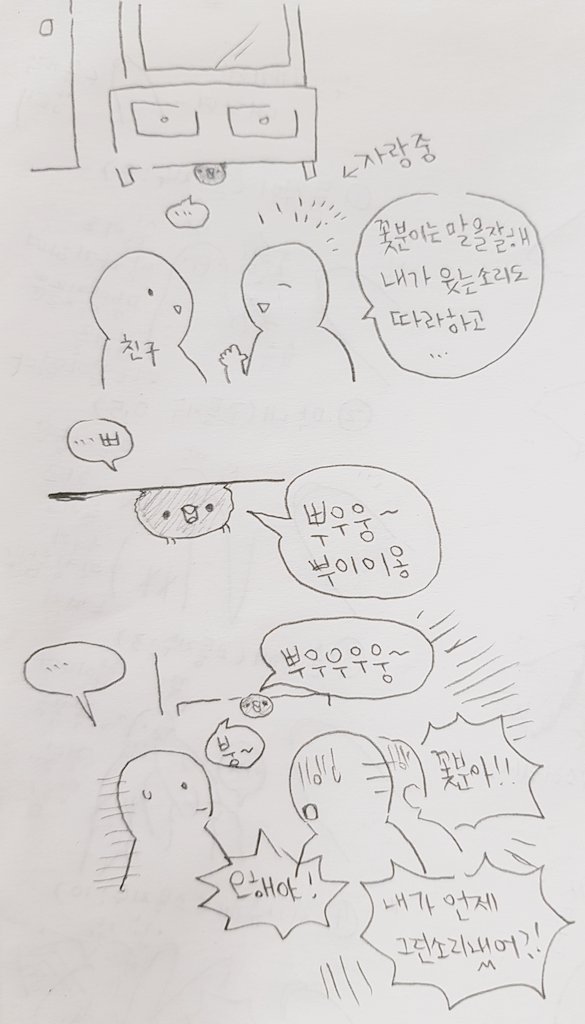 자랑중
...
꽃분이는 말을잘해
내가 웃는소리도
따라하고
...
친구
...뿌
뿌우웅~
뿌이이옹
...
뿌우우우웅~
뿡~
꽃분아!!
오해야!
내가 언제
그런소리냈어?!